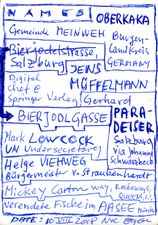 NAMES
OBERKAKA
Gemeinde MEINWEH
Burgen-
landkreis
GERMANY
Bierjodelstrasse,
Salzburg
JENS
MÜFFELMANN
Digital
chef @
Springer Verlag
Gerhard
BIERJODLGASSE
PARA-
DEISER
Salzburg
via Johann
Schwarzbeck
Mark Lowcock
UN Undersecretary
Helge VIEHWEG
Bürgermeister v. Straubenhardt
Mickey Carton way,
Rockaways,
Queens
verendete Fische im AASEE
DATE: 10 VIII 2018 NYC